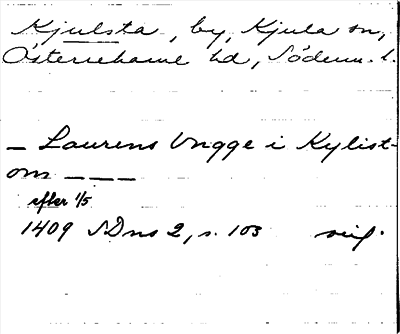 Kjulsta, by, Kjula sn,
Österrekarne hd, Söderm. l.
– Laurens Ungge i Kylist-
om – – –
efter 1/5
1409 SDns 2, s. 103 orig.